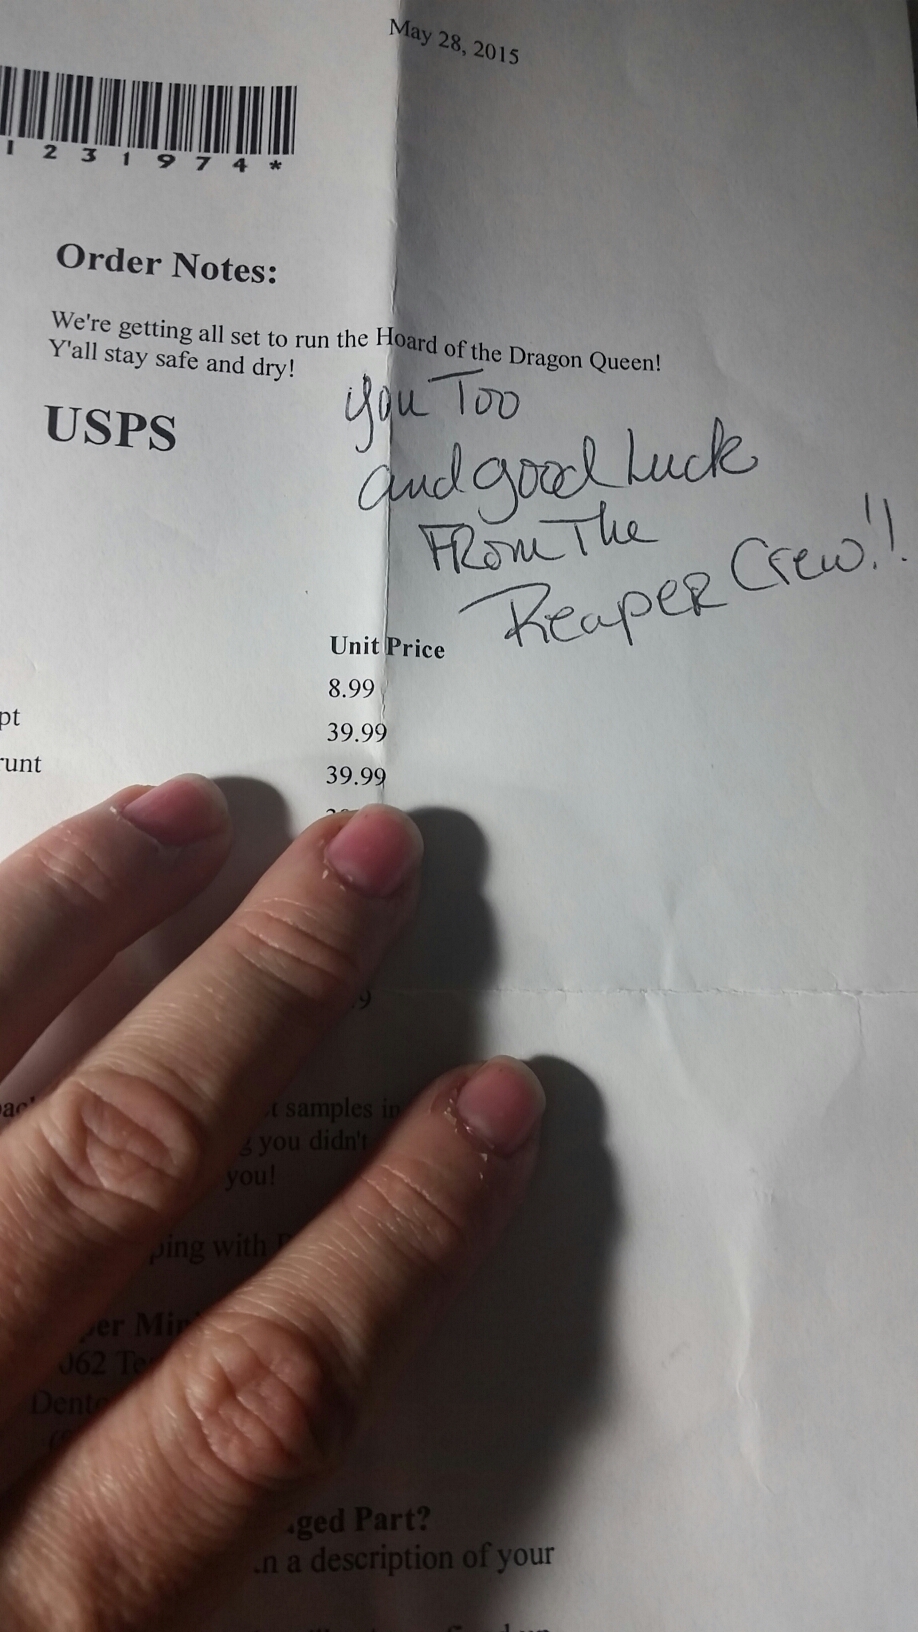 May 28, 2015
1 2 3 1 9 7 4 *
Order Notes:
We're getting all set to run the Hoard of the Dragon Queen!
Y'all stay safe and dry!
You Too
and good Luck
From The
Reaper Crew!!
USPS
Unit Price
8.99
pt 39.99
runt 39.99
samples in
you didn't
you!
ping with
per Min
062 Te
Dento
ged Part?
n a description of your